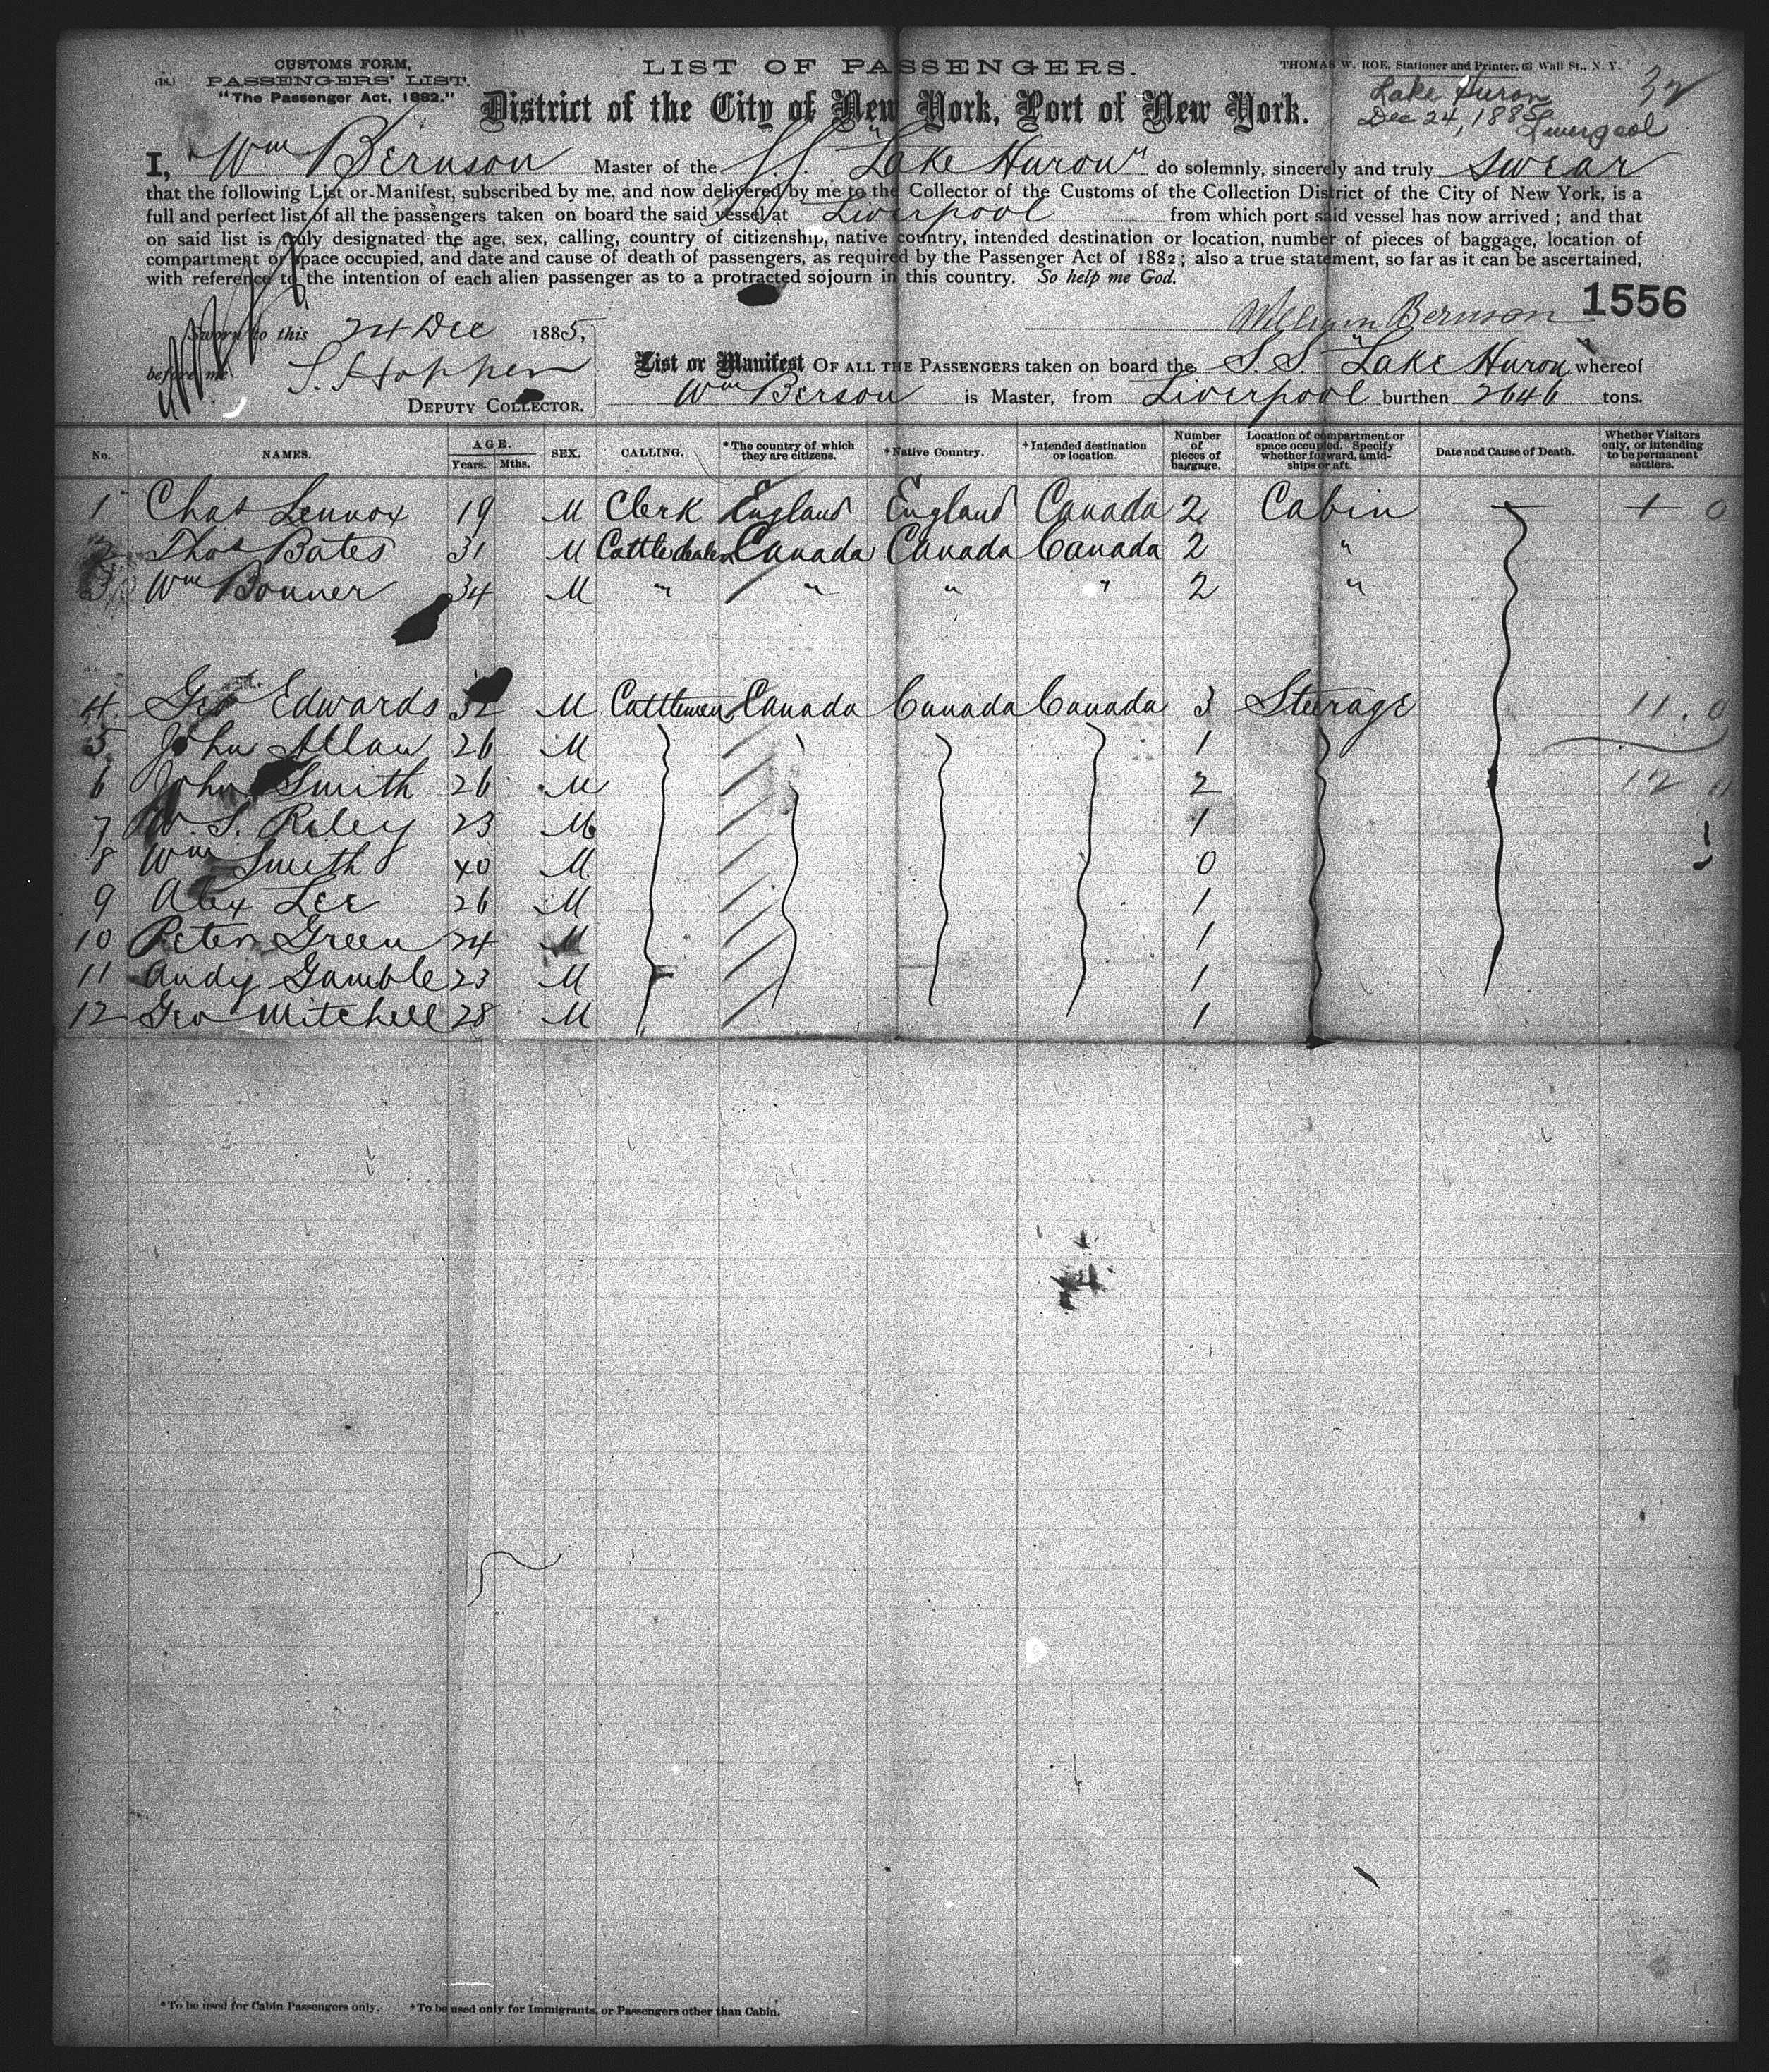 CUSTOMS FORM,
(18.) PASSENGERS' LIST.
"The Passenger Act, 1882."
LIST OF PASSENGERS.
THOMAS W. ROE, Stationer and Printer, 63 Wall St., N. Y.
District of the City of New York, Port of New York.
Lake Huron 32
Dec 24, 1885
Liverpool
I, Wm Bernson Master of the S.S. "Lake Huron" do solemnly, sincerely and truly swear
that the following List or Manifest, subscribed by me, and now delivered by me to the Collector of the Customs of the Collection District of the City of New York, is a
full and perfect list of all the passengers taken on board the said vessel at Liverpool from which port said vessel has now arrived; and that
on said list is truly designated the age, sex, calling, country of citizenship, native country, intended destination or location, number of pieces of baggage, location of
compartment or space occupied, and date and cause of death of passengers, as required by the Passenger Act of 1882; also a true statement, so far as it can be ascertained,
with reference to the intention of each alien passenger as to a protracted sojourn in this country. So help me God.
1556
Sworn to this 24 Dec 1885,
William Bernson
before me S. Hopper
DEPUTY COLLECTOR.
List or Manifest OF ALL THE PASSENGERS taken on board the S.S. "Lake Huron" whereof
Wm Berson is Master, from Liverpool burthen 2646 tons.
No. NAMES. AGE. Years. Mths. SEX. CALLING. *The country of which they are citizens. †Native Country. †Intended destination or location. Number of pieces of baggage. Location of compartment or space occupied. Specify whether forward, amidships or aft. Date and Cause of Death. Whether Visitors only, or intending to be permanent settlers.
1 Chas Lennox 19 M Clerk England England Canada 2 Cabin 1 0
2 Thos Bates 31 M Cattle dealer Canada Canada Canada 2 "
3 Wm Bonner 34 M " " " " 2 "
4 Geo Edwards 32 M Cattlemen Canada Canada Canada 3 Steerage 11. 0
5 John Allan 26 M 1
6 John Smith 26 M 2 12 0
7 W. S. Riley 23 M 1
8 Wm Smith 40 M 0
9 Alex Lee 26 M 1
10 Peter Green 24 M 1
11 Andy Gamble 23 M 1
12 Geo Mitchell 28 M 1
*To be used for Cabin Passengers only. †To be used only for Immigrants, or Passengers other than Cabin.